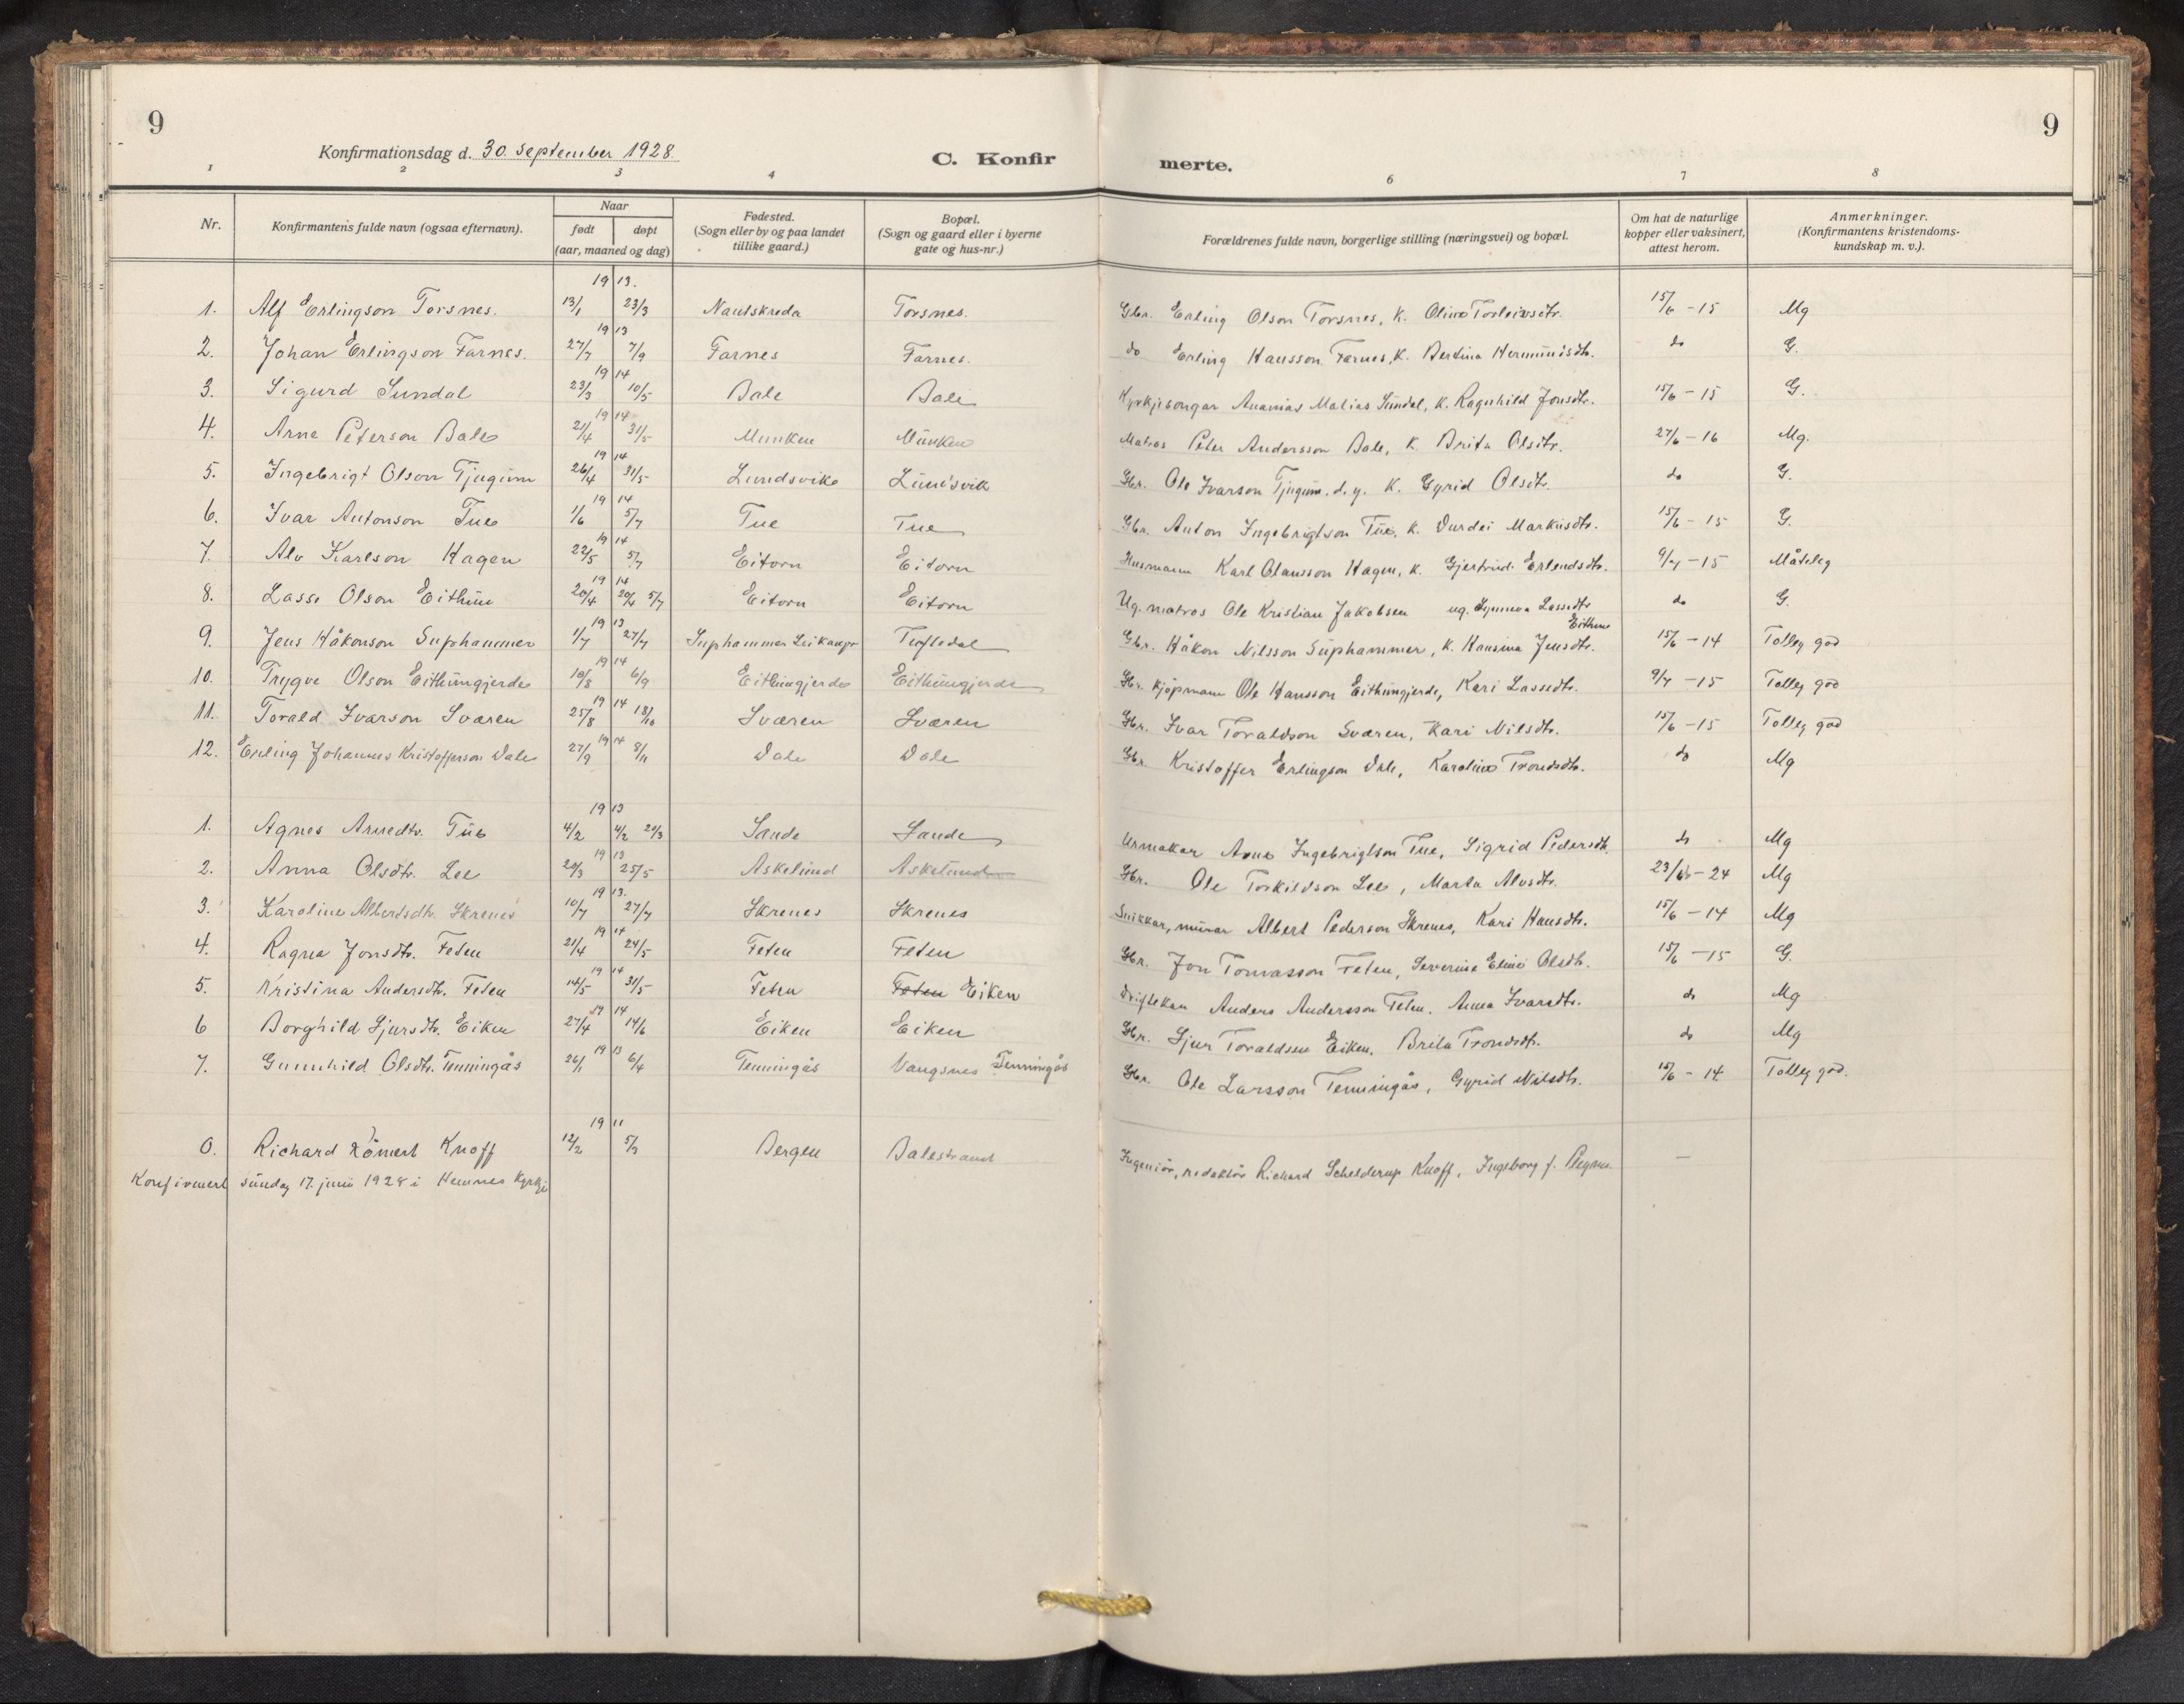 9
9
Konfirmationsdag d. 30. September 1928.
C. Konfir
merte.
1 2 3 4 6 7 8
Nr.
Konfirmantens fulde navn (ogsaa efternavn).
Naar
født døpt
(aar, maaned og dag)
Fødested.
(Sogn eller by og paa landet
tillike gaard.)
Bopæl.
(Sogn og gaard eller i byerne
gate og hus-nr.)
Forældrenes fulde navn, borgerlige stilling (næringsvei) og bopæl.
Om hat de naturlige
kopper eller vaksinert,
attest herom.
Anmerkninger.
(Konfirmantens kristendoms-
kundskap m. v.).
19 13.
1. Alf Erlingson Torsnes. 13/1 23/3 Nautskreda Torsnes. Gbr. Erling Olson Torsnes, k. Olina Torleivsdtr. 15/6 - 15 Mg
19 13
2. Johan Erlingson Farnes. 27/7 7/9 Farnes Farnes. do Erling Hansson Farnes, k. Bertina Hermundsdtr. do G.
19 14
3. Sigurd Sundal 23/3 10/5 Bale Bale Kyrkjesongar Ananias Matias Sundal, k. Ragnhild Jonsdtr. 15/6 - 15 G.
19 14
4. Arne Peterson Bale 21/4 31/5 Munken Munken Matros Peter Andersson Bale, k. Brita Olsdtr. 27/6 - 16 Mg.
19 14
5. Ingebrigt Olson Tjugum 26/4 31/5 Lundsvik Lundsvik Gbr. Ole Ivarson Tjugum. d.y. k. Gyrid Olsdtr. do G.
19 14
6. Ivar Antonson Tue 1/6 5/7 Tue Tue Gbr. Anton Ingebrigtson Tue, k. Durdei Markusdtr. 15/6 - 15 G.
19 14
7. Alv Karlson Hagen 22/5 5/7 Eitorn Eitorn Husmann Karl Olausson Hagen, k. Gjertrud Erlendsdtr. 9/7 - 15 Måteleg
19 14
8. Lasse Olson Eithun 20/4 20/4 5/7 Eitorn Eitorn Ug. matros Ole Kristian Jakobsen ug. Synneva Lassedtr
Eithun do G.
19 13
9. Jens Håkonson Suphammer 1/7 27/7 Suphammer Leikanger Gbr. Håkon Nilsson Suphammer, k. Hansina Jensdtr. 15/6 - 14 Tolleg god
19 14
10. Trygve Olson Eithungjerde 10/8 6/9 Eithungjerde Eithungjerde Gbr. kjøpmann Ole Hansson Eithungjerde, Kari Lassedtr. 9/7 - 15 Tolleg god
19 14
11. Torald Ivarson Sværen 25/8 18/10 Sværen Sværen Gbr. Ivar Toraldson Sværen, Kari Nilsdtr. 15/6 - 15 Tolleg god
19 14
12. Erling Johannes Kristofferson Dale 27/9 8/11 Dale Dale Gbr. Kristoffer Erlingson Dale, Karolina Trondsdtr. do Mg
19 13
1. Agnes Arnedtr. Tue 4/2 4/2 20/3 Sande Sande Urmakar Arne Ingebrigtson Tue, Sigrid Pedersdtr. do Mg
19 13
2. Anna Olsdtr. Lee 20/3 25/5 Askelund Askelund Gbr. Ole Torkildson Lee, Marta Alvsdtr. - 24 Mg
19 13.
3. Karoline Albertsdtr. Skrenes 10/7 27/7 Skrenes Skrenes Snikkar, murar Albert Pederson Skrenes, Kari Hansdtr. 15/6 - 14 Mg
19 14
4. Ragna Jonsdtr. Feten 21/4 24/5 Feten Feten Gbr. Jon Tomasson Feten, Severina Elina Olsdtr. 15/6 - 15 G.
19 14
5. Kristina Andersdtr. Feten 14/5 31/5 Feten Feten Eiken Anders Andersson Feten. Anna Ivarsdtr. do Mg
19 14
6 Borghild Sjursdtr. Eiken 27/4 14/6 Eiken Eiken Gbr. Sjur Toraldsen Eiken. Brita Trondsdtr. do Mg
19 13
7. Gunnhild Olsdtr. Tenningås 26/1 6/4 Tenningås Vangsnes Tenningås Gbr. Ole Larsson Tenningås, Gyrid Nilsdtr. 15/6 - 14. Tolleg god.
19 11
0. Richard Römert Knoff 12/2 5/3 Bergen Balestrand Ingeniør, redaktör Richard Schelderup Knoff, Ingeborg f. —
Konfirmert sundag 17. juni 1928 i Hemnes kyrkje